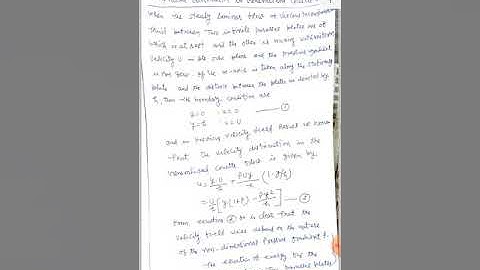 When the steady laminar flow of viscous incompressible
fluid between two infinite parallel plates one of
which is at rest and the other is moving with uniform
velocity U in its own plane and the pressure gradient
is not zero. If the x-axis is taken along the stationary
plate and the distance between the plates is denoted by
h, then the boundary condition are
y=0 : u=0
y=h : u=U —①
and in previous velocity field result we know
that the velocity distribution in the
generalised couette flow is given by
u = yU/h + PUy/h (1-y/h)
= U/h [y(1+P) - Py²/h] —②
from equation ② it is clear that the
velocity field will depend on the nature
of the non-dimensional pressure gradient P.
The equation of energy for the
parallel plates